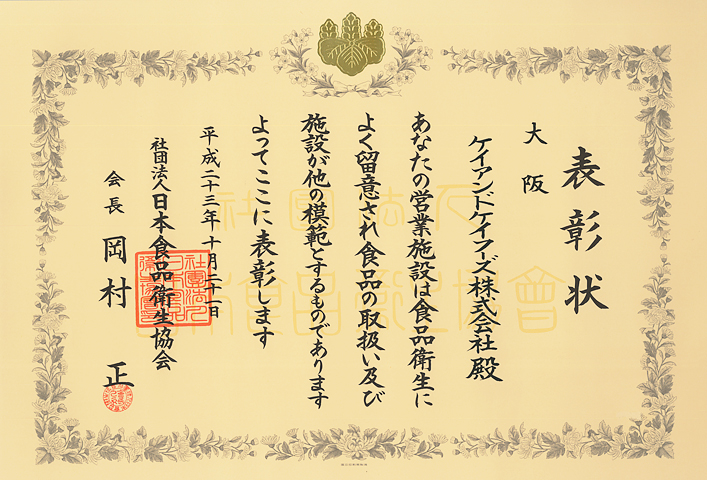 表彰状
大阪
ケイアンドケイフーズ株式会社殿
あなたの営業施設は食品衛生に
よく留意され食品の取扱い及び
施設が他の模範とするものであります
よってここに表彰します
平成二十三年十月二十一日
社団法人日本食品衛生協会
会長 岡村 正